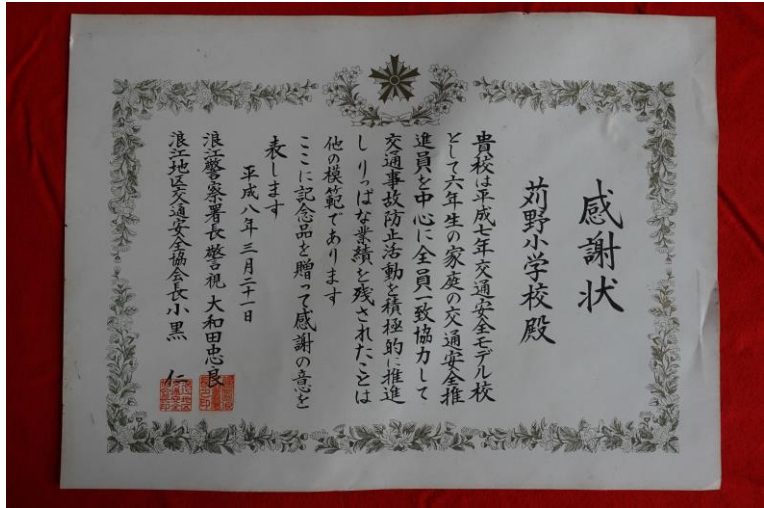 感謝状
苅野小学校殿
貴校は平成七年交通安全モデル校
として六年生の家庭の交通安全推
進員を中心に全員一致協力して
交通事故防止活動を積極的に推進
しりっぱな業績を残されたことは
他の模範であります
ここに記念品を贈って感謝の意を
表します
平成八年三月二十一日
浪江警察署長 警視 大和田忠良
浪江地区交通安全協会長 小黒 仁